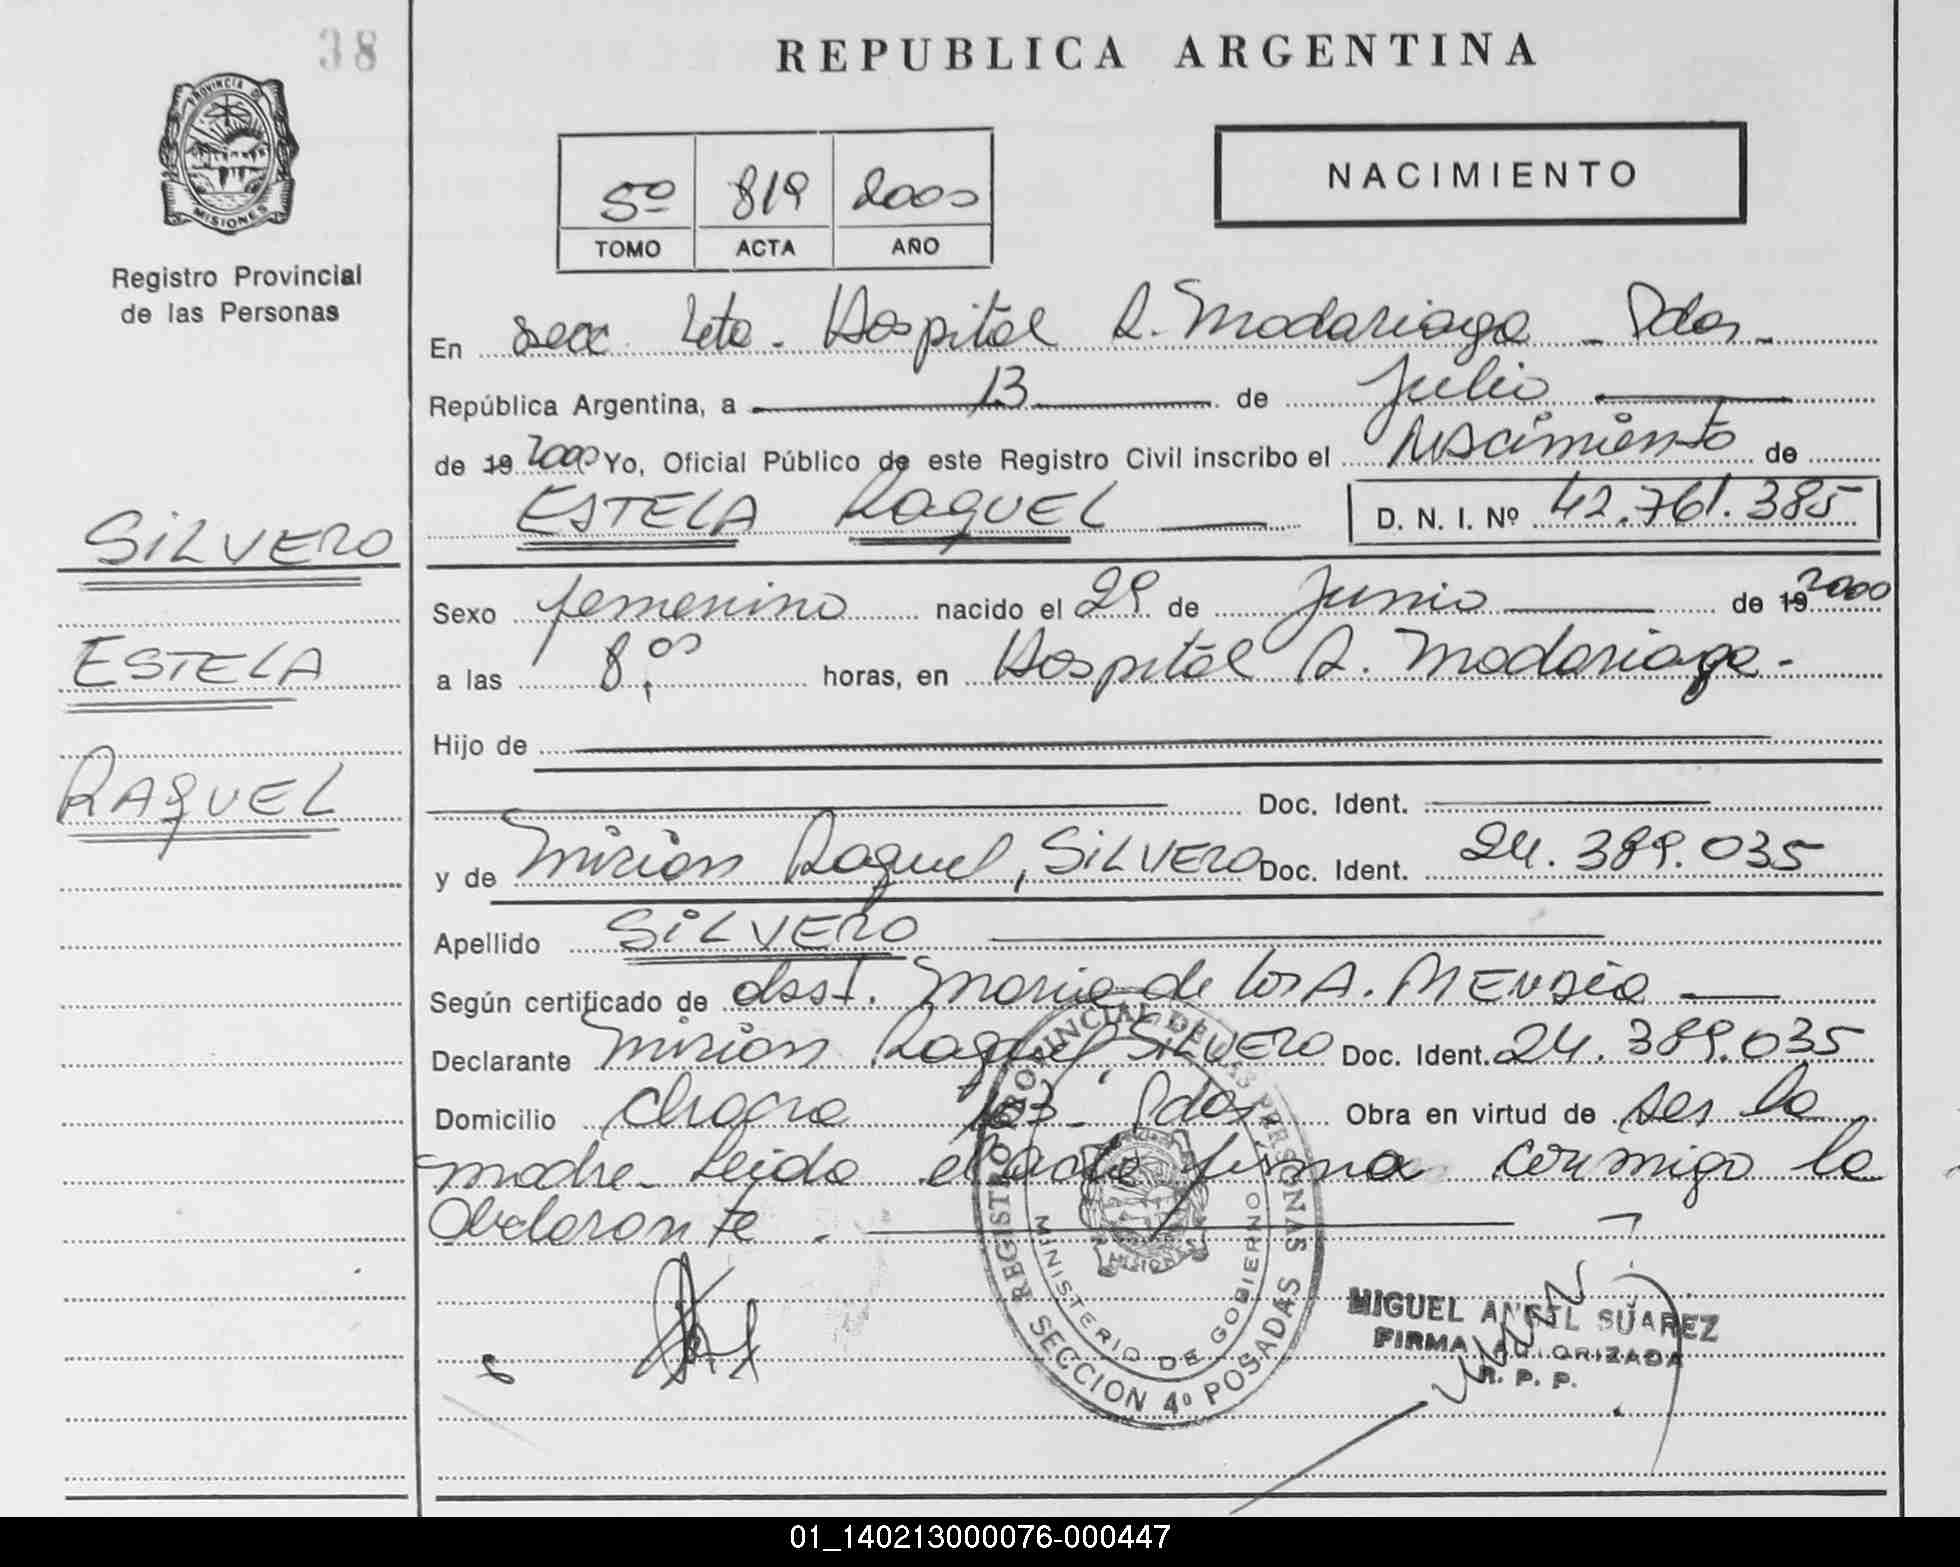 38
REPUBLICA ARGENTINA
PROVINCIA D
MISIONES
Registro Provincial
de las Personas
5º 819 2000
TOMO ACTA AÑO
NACIMIENTO
En Secc. 4ta. Hospital R. Madariaga - Pdas.
República Argentina, a 13 de Julio
de 19 2000 Yo, Oficial Público de este Registro Civil inscribo el Nacimiento de
ESTELA RAQUEL D. N. I. Nº 42.761.385
SILVERO
ESTELA
RAQUEL
Sexo femenino nacido el 29 de Junio de 19 2000
a las 8:00 horas, en Hospital R. Madariaga.
Hijo de
Doc. Ident.
y de Mirian Raquel, SILVERO Doc. Ident. 24.389.035
Apellido SILVERO
Según certificado de obst. Maria de los A. MENDEZ
Declarante Mirian Raquel SILVERO Doc. Ident. 24.389.035
Domicilio chacra Pdas. Obra en virtud de ser la
madre. Leida el acta firma conmigo la
declarante.
REGISTRO PROVINCIAL DE LAS PERSONAS
MINISTERIO DE GOBIERNO
MISIONES
SECCION 4º POSADAS
MIGUEL ANGEL SUAREZ
FIRMA AUTORIZADA
R. P. P.
01_140213000076-000447